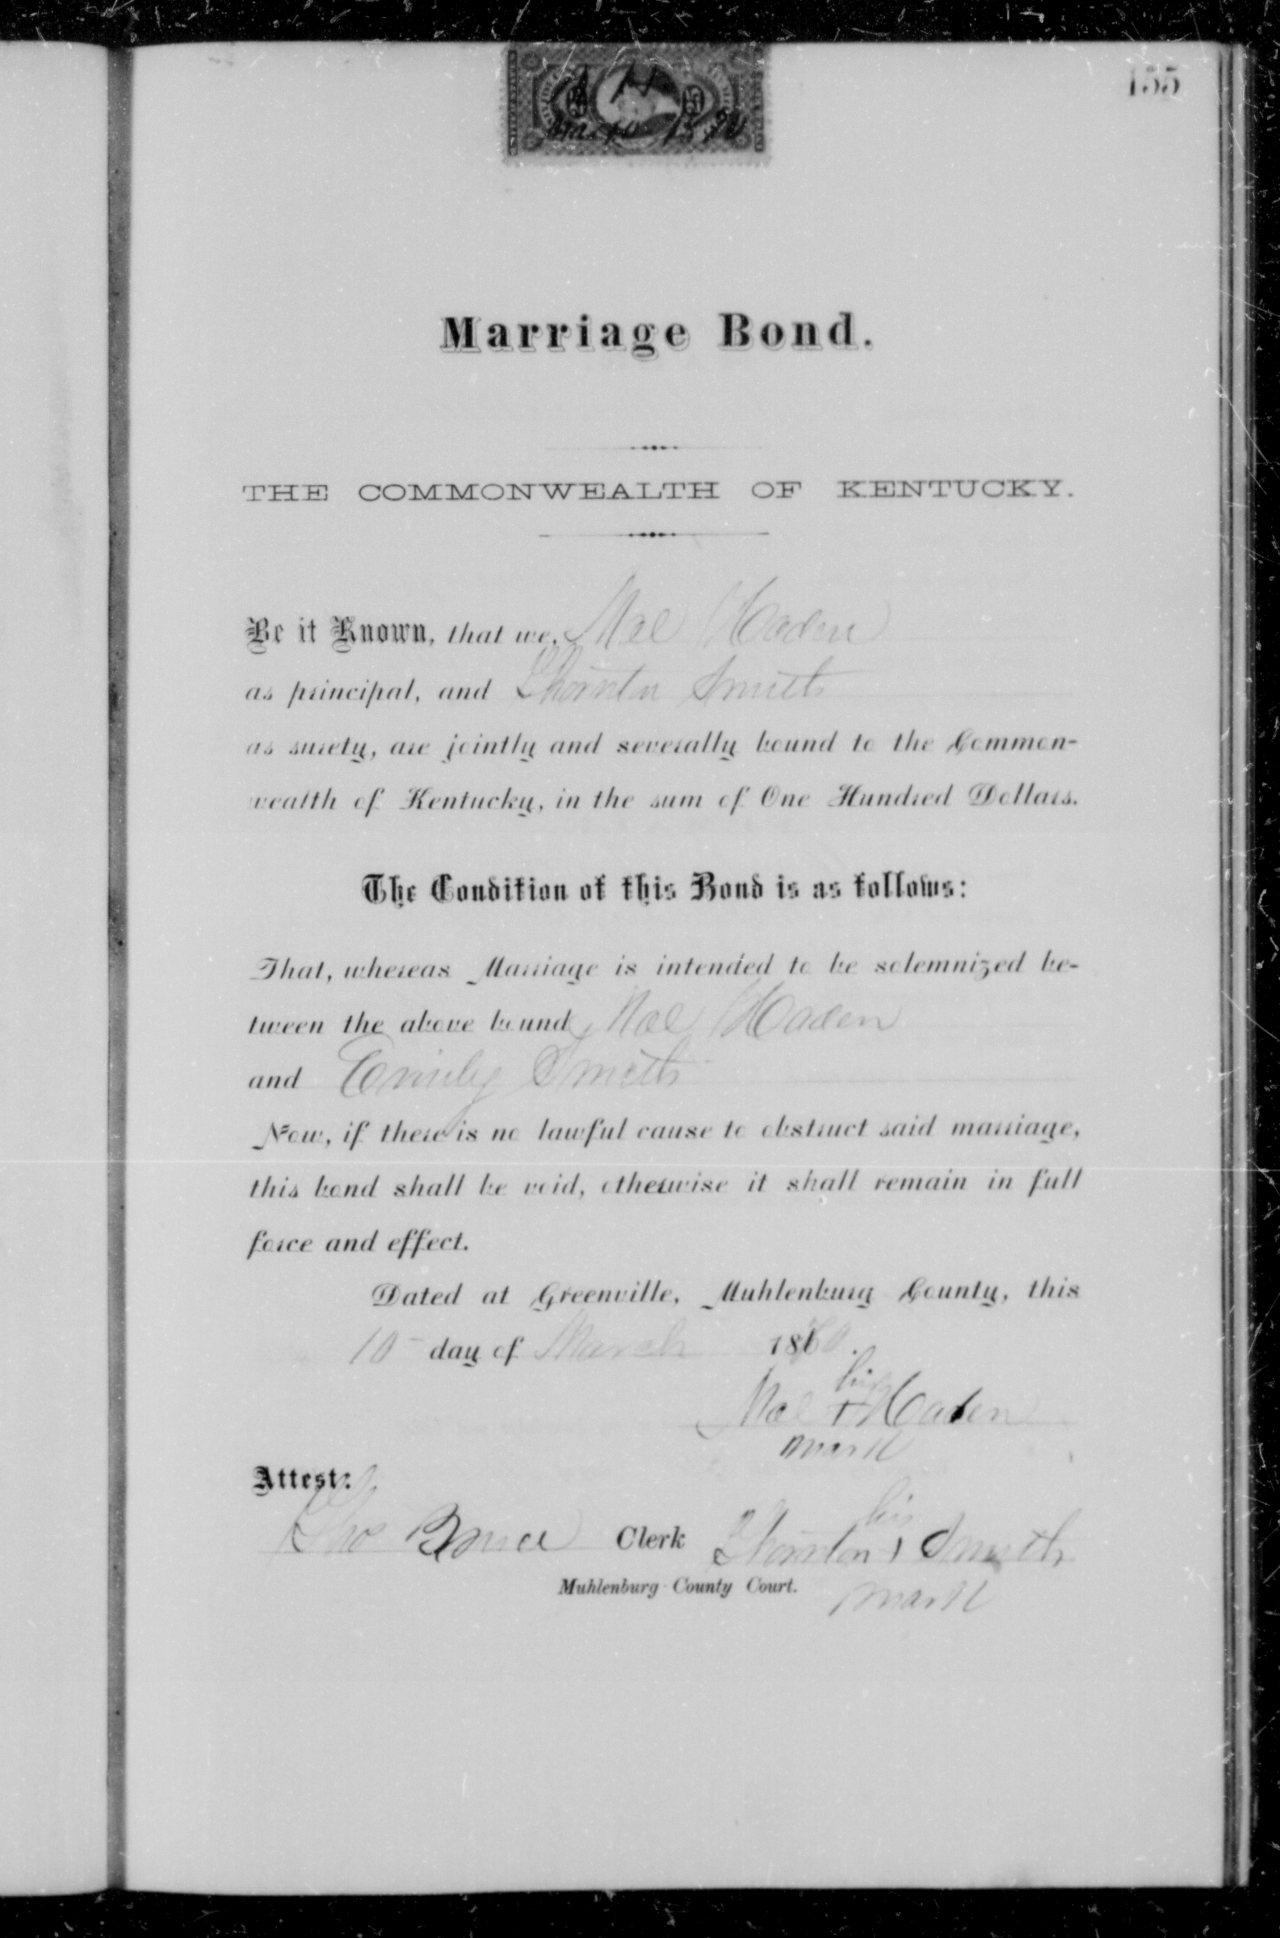 155
Marriage Bond.
THE COMMONWEALTH OF KENTUCKY.
Be it Known, that we, Haden
as principal, and Thornton Smith
as surety, are jointly and severally bound to the Common-
wealth of Kentucky, in the sum of One Hundred Dollars.
The Condition of this Bond is as follows:
That, whereas Marriage is intended to be solemnized be-
tween the above bound Haden
and Emily Smith
Now, if there is no lawful cause to obstruct said marriage,
this bond shall be void, otherwise it shall remain in full
force and effect.
Dated at Greenville, Muhlenburg County, this
10 day of March 18
his
+ Haden
mark
Attest:
his
Tho Bruce Clerk Thornton + Smith
Muhlenburg County Court. mark